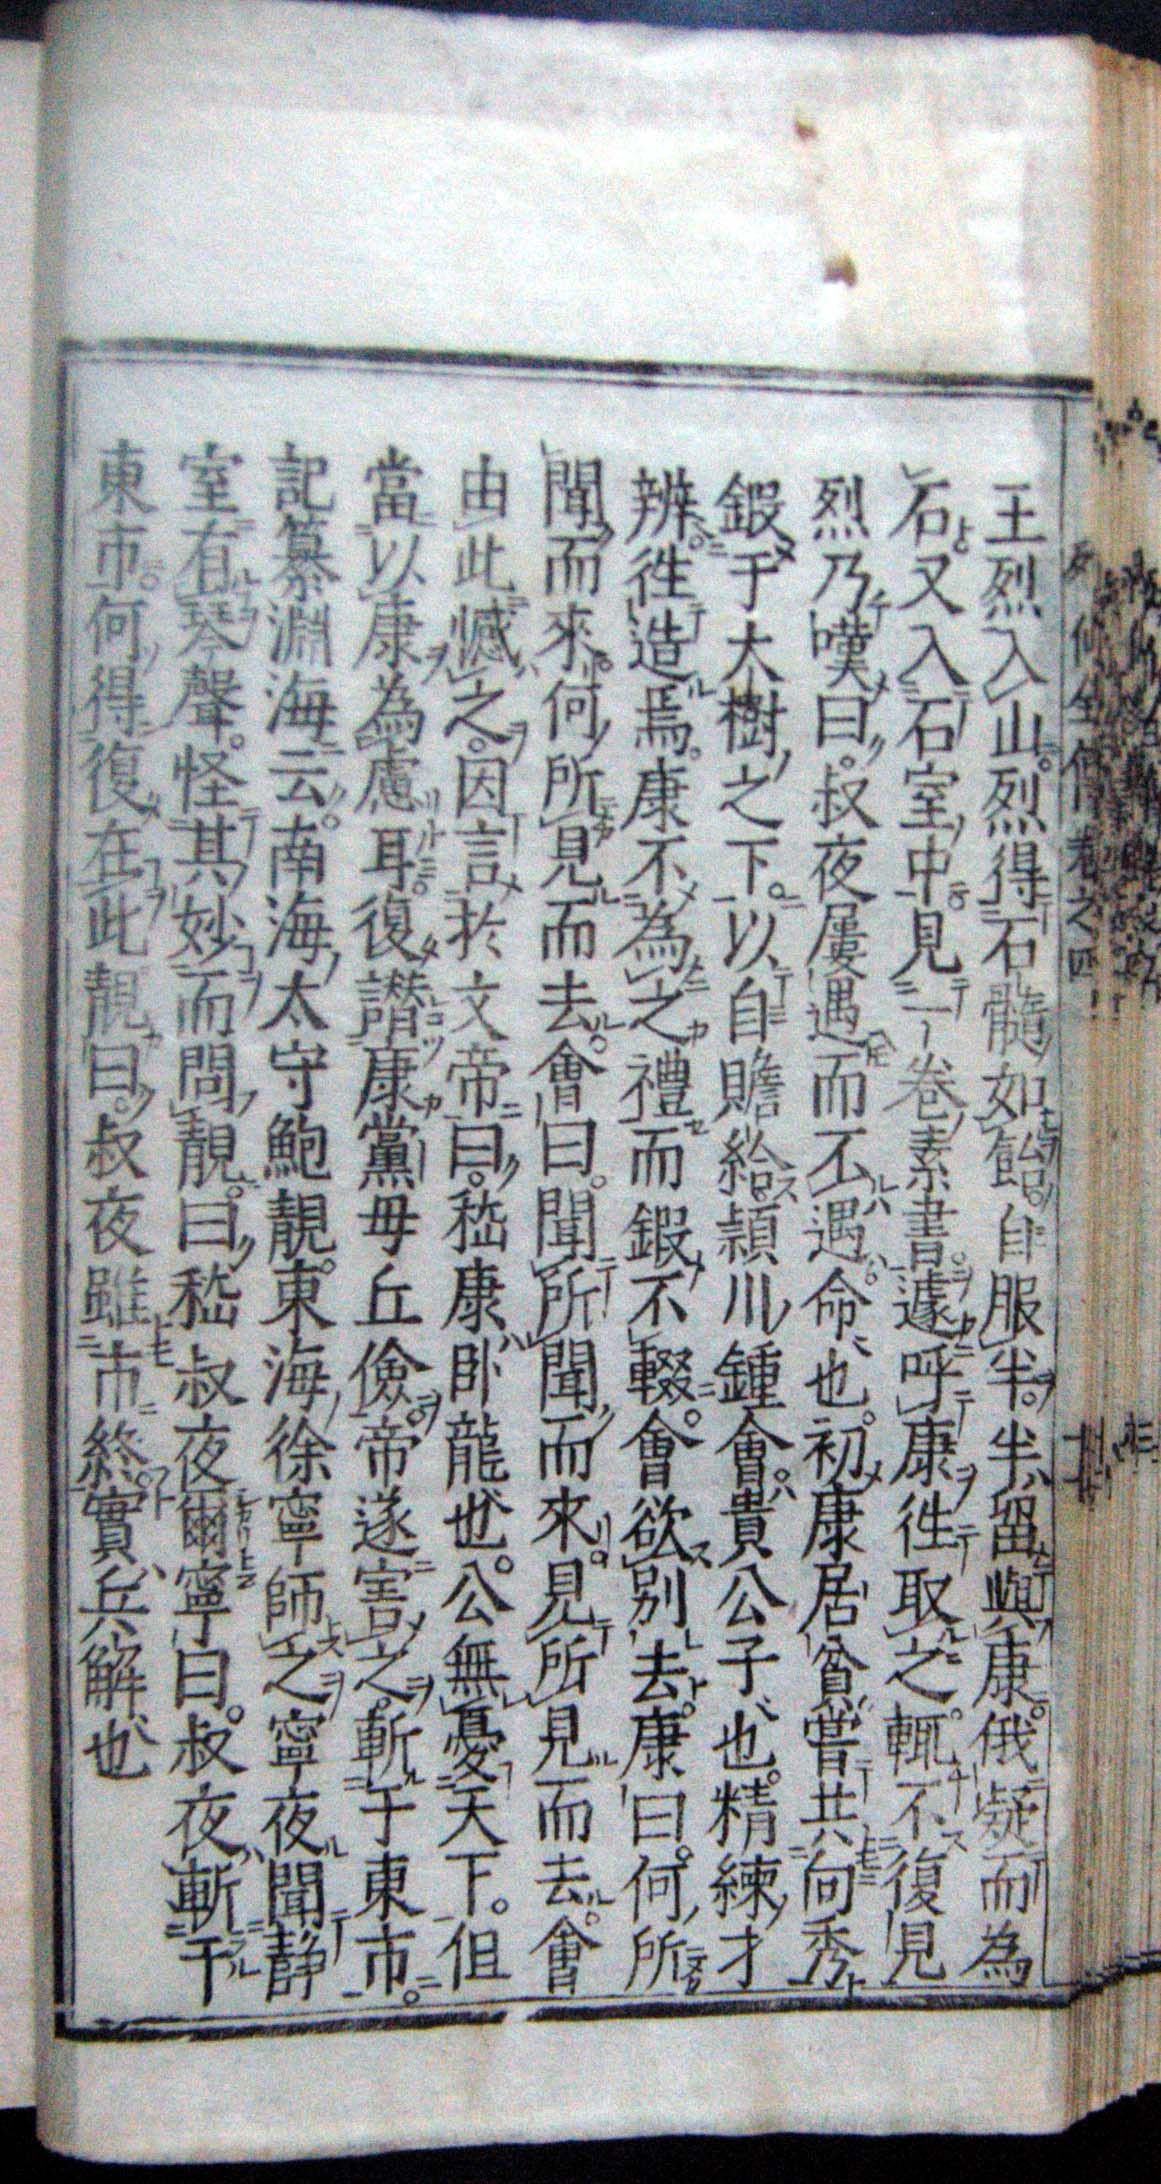 王烈入山。烈得石髓如飴。自服半。半留與康。俄凝而為
石。又入石室中。見一卷素書。遽呼康徃取之。輒不復見
烈乃嘆曰。叔夜屢遇而不遇。命也。初康居貧。甞共向秀
鍛于大樹之下。以自贍給。頴川鍾會。貴公子也。精練才
辨。徃造焉。康不為之禮而鍛不輟。會欲別去。康曰。何所
聞而來。何所見而去。會曰。聞所聞而來。見所見而去。會
由此憾之。因言於文帝曰。嵇康卧龍也。公無憂天下。但
當以康為慮耳。復譖康黨毋丘儉。帝遂害之。斬于東市。
記纂淵海云。南海太守鮑靚。東海徐寧師之。寧夜聞静
室有琴聲。怪其妙而問靚。曰嵇叔夜爾。寧曰。叔夜斬于
東市。何得復在此靚曰。叔夜雖市終。實兵解也